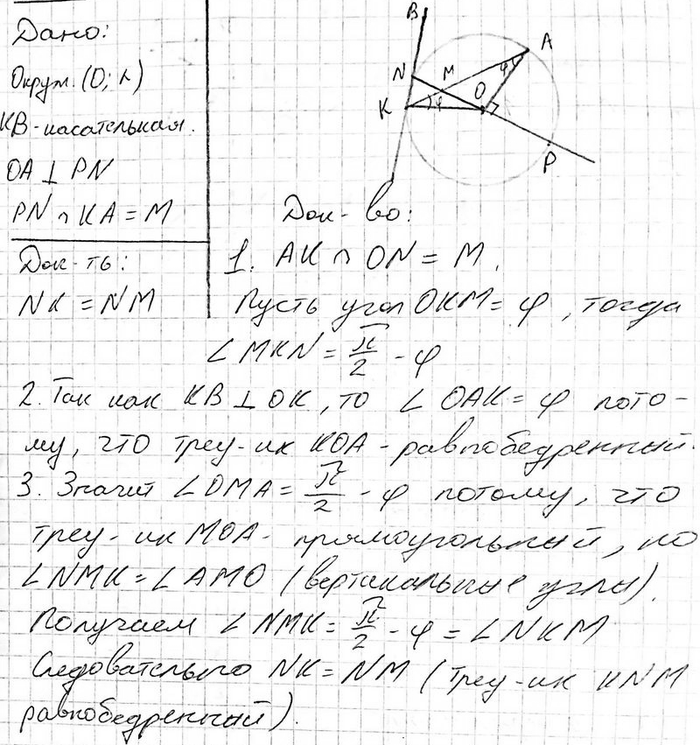 Дано:
Окруж. (O; r)
KB-касательная.
OA ⊥ PN
PN ∩ KA = M
Док-ть:
NK = NM
B
A
N
M
φ
O
K
φ
P
Док-во:
1. AK ∩ ON = M.
Пусть угол OKM = φ, тогда
∠ MKN = π/2 - φ
2. Так как KB ⊥ OK, то ∠ OAK = φ пото-
му, что треу-ик KOA - равнобедренный.
3. Значит ∠ OMA = π/2 - φ потому, что
треу-ик MOA - прямоугольный, но
∠ NMK = ∠ AMO (вертикальные углы).
Получаем ∠ NMK = π/2 - φ = ∠ NKM
Следовательно NK = NM (треу-ик KNM
равнобедренный).